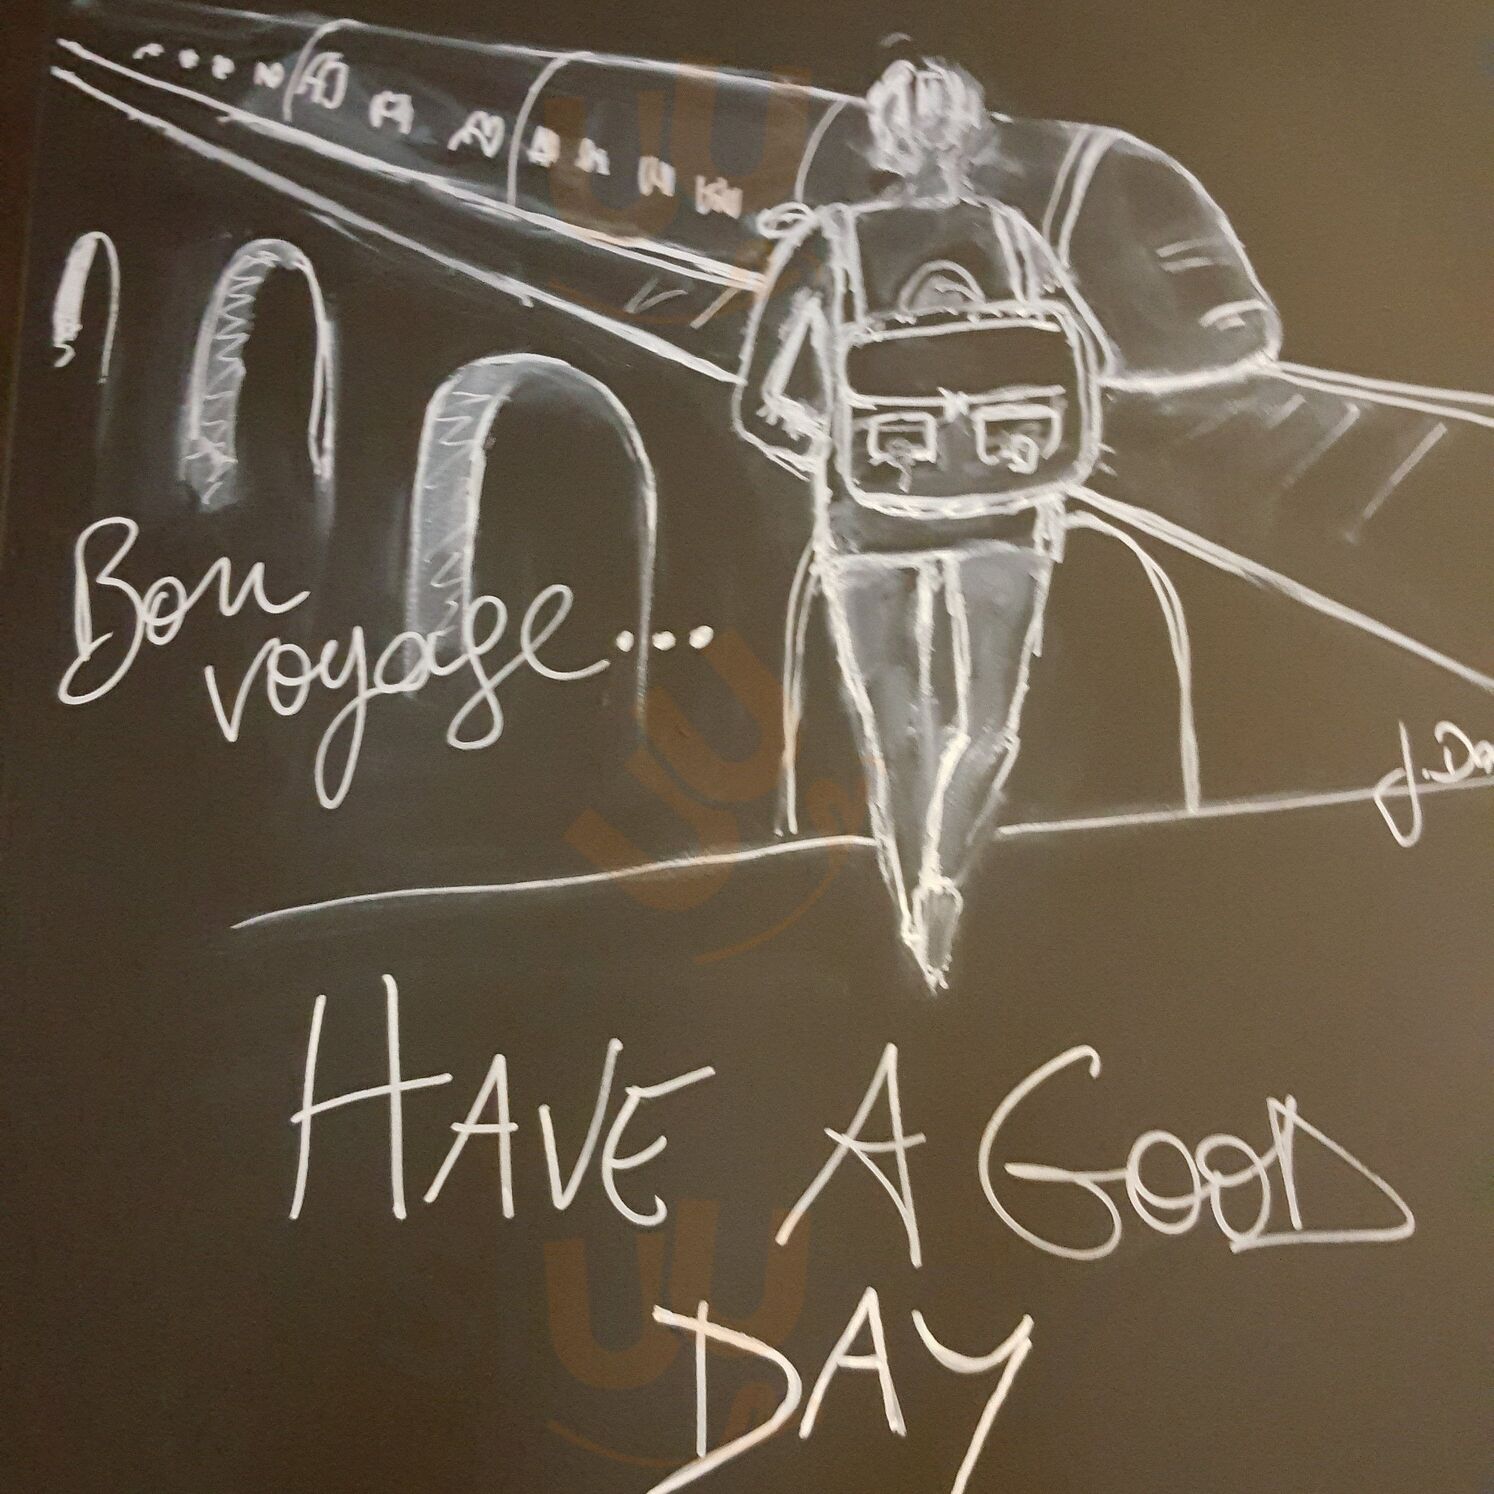 Bon
voyage...
HAVE A GOOD
DAY